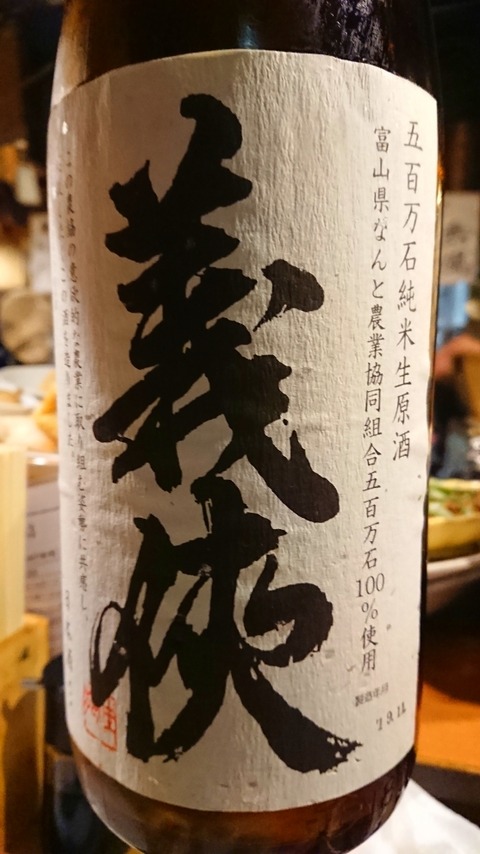 五百万石純米生原酒
富山県なんと農業協同組合五百万石100%使用
製造年月
'19.11
義侠
この農協の意欲的な農業に取り組む姿勢に共感し
この酒を造りました